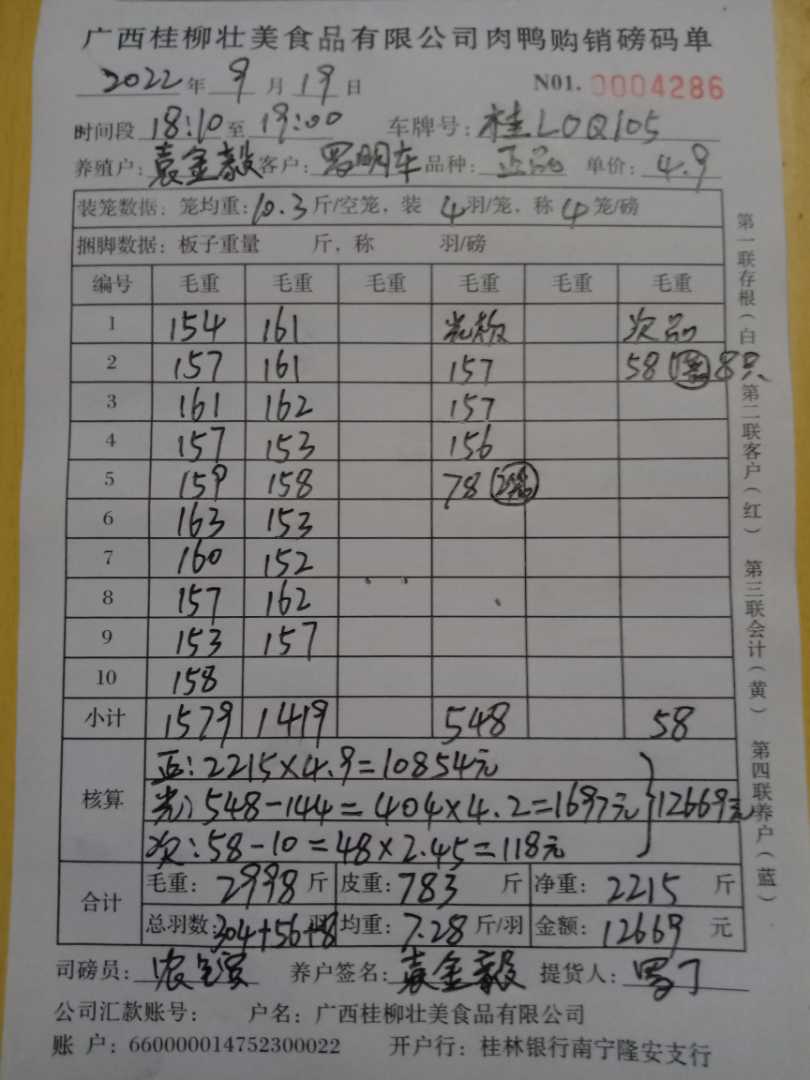 广西桂柳壮美食品有限公司肉鸭购销磅码单
2022年9月19日 N01. 0004286
时间段 18:10至19:00 车牌号:桂L0Q105
养殖户:袁金毅 客户:罗明车 品种:正品 单价:4.9
装笼数据:笼均重:10.3斤/空笼,装 4羽/笼,称4笼/磅
捆脚数据:板子重量 斤,称 羽/磅
编号 毛重 毛重 毛重 毛重 毛重 毛重
1 154 161 次品
2 157 161 157 58 8只
3 161 162 157
4 157 153 156
5 159 158 78
6 163 153
7 160 152
8 157 162
9 153 157
10 158
小计 1579 1419 548 58
核算
正:2215×4.9=10854元
光:548-144=404×4.2=1697元
次:58-10=48×2.45=118元
12669元
合计
毛重:2998斤 皮重:783斤 净重:2215斤
总羽数:304+56+8羽 均重:7.28斤/羽 金额:12669元
司磅员: 养户签名:袁金毅 提货人:
公司汇款账号: 户名:广西桂柳壮美食品有限公司
账 户:660000014752300022 开户行:桂林银行南宁隆安支行
第一联存根(白)
第二联客户(红)
第三联会计(黄)
第四联养户(蓝)